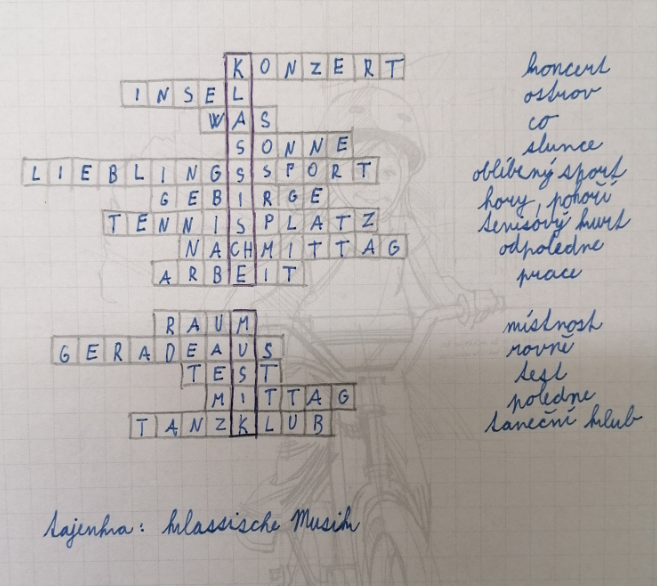 KONZERT koncert
INSEL ostrov
WAS co
SONNE slunce
LIEBLINGSSPORT oblíbený sport
GEBIRGE hory, pohoří
TENNISPLATZ tenisový kurt
NACHMITTAG odpoledne
ARBEIT práce
RAUM místnost
GERADEAUS rovně
TEST test
MITTAG poledne
TANZKLUB taneční klub
tajenka: klassische Musik